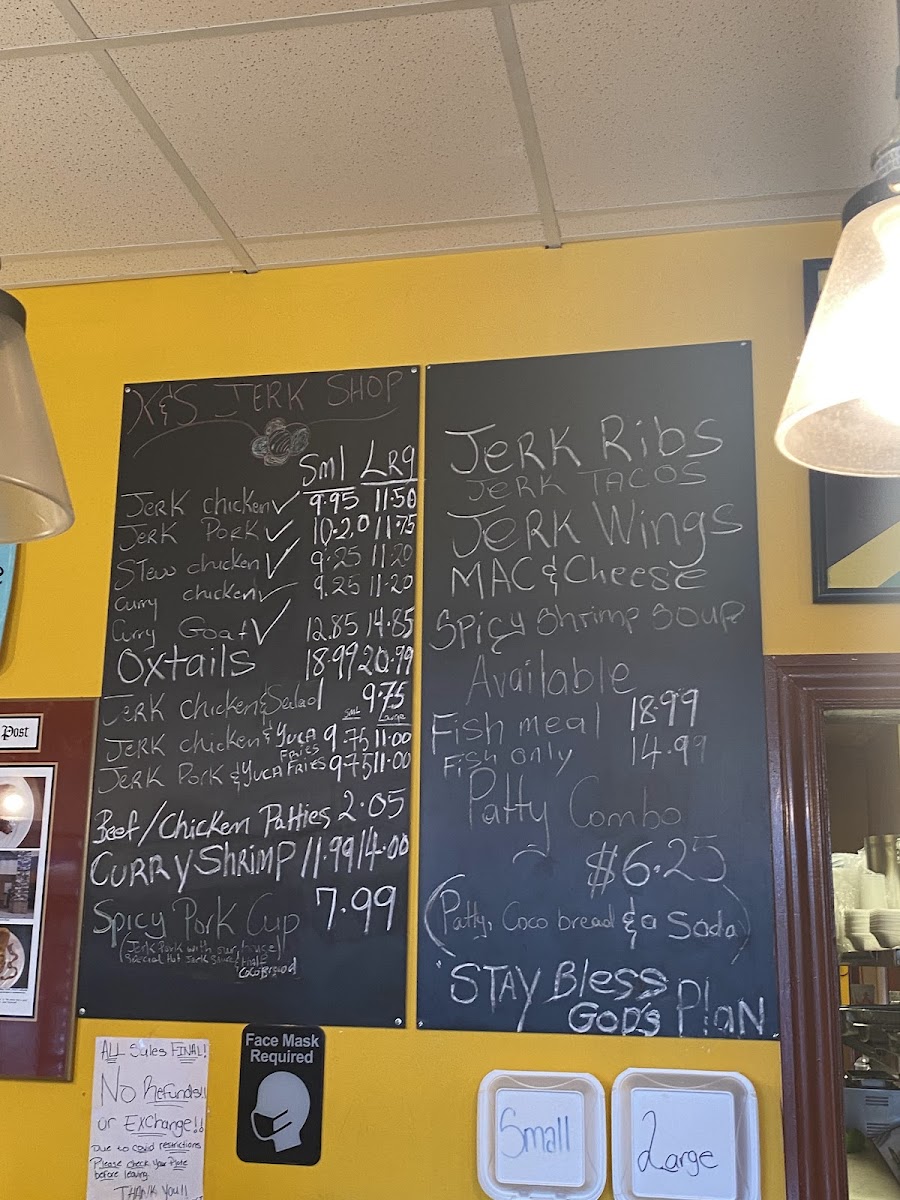 K&S JERK SHOP
Sml LRg
JerK chicken ✓ 9.95 11.50
JerK PorK ✓ 10.20 11.75
STew chicken ✓ 9.25 11.20
Curry chicken ✓ 9.25 11.20
Curry Goat ✓ 12.85 14.85
Oxtails 18.99 20.99
JERK chicken & Salad 9.75
Sml Large
JERK chicken & Yuca Fries 9.75 11.00
JERK PorK & Yuca Fries 9.75 11.00
Beef/Chicken Patties 2.05
CURRY SHRIMP 11.99 14.00
Spicy Pork Cup 7.99
(Jerk Pork with our house
Special Hot Jerk Sauce & Half
CocoBread
Jerk Ribs
JERK TACOS
JERK Wings
MAC & Cheese
Spicy Shrimp Soup
Available
Fish meal 18.99
Fish only 14.99
Patty Combo
$6.25
(Patty, Coco bread & a Soda)
STAY Bless
GOD's PlaN
Post
ALL Sales FINAL!
No Refunds!!
or EXchange!!
Due to covid restrictions
Please check Your Plate
before leaving.
THANK You!!
Face Mask
Required
Small
Large